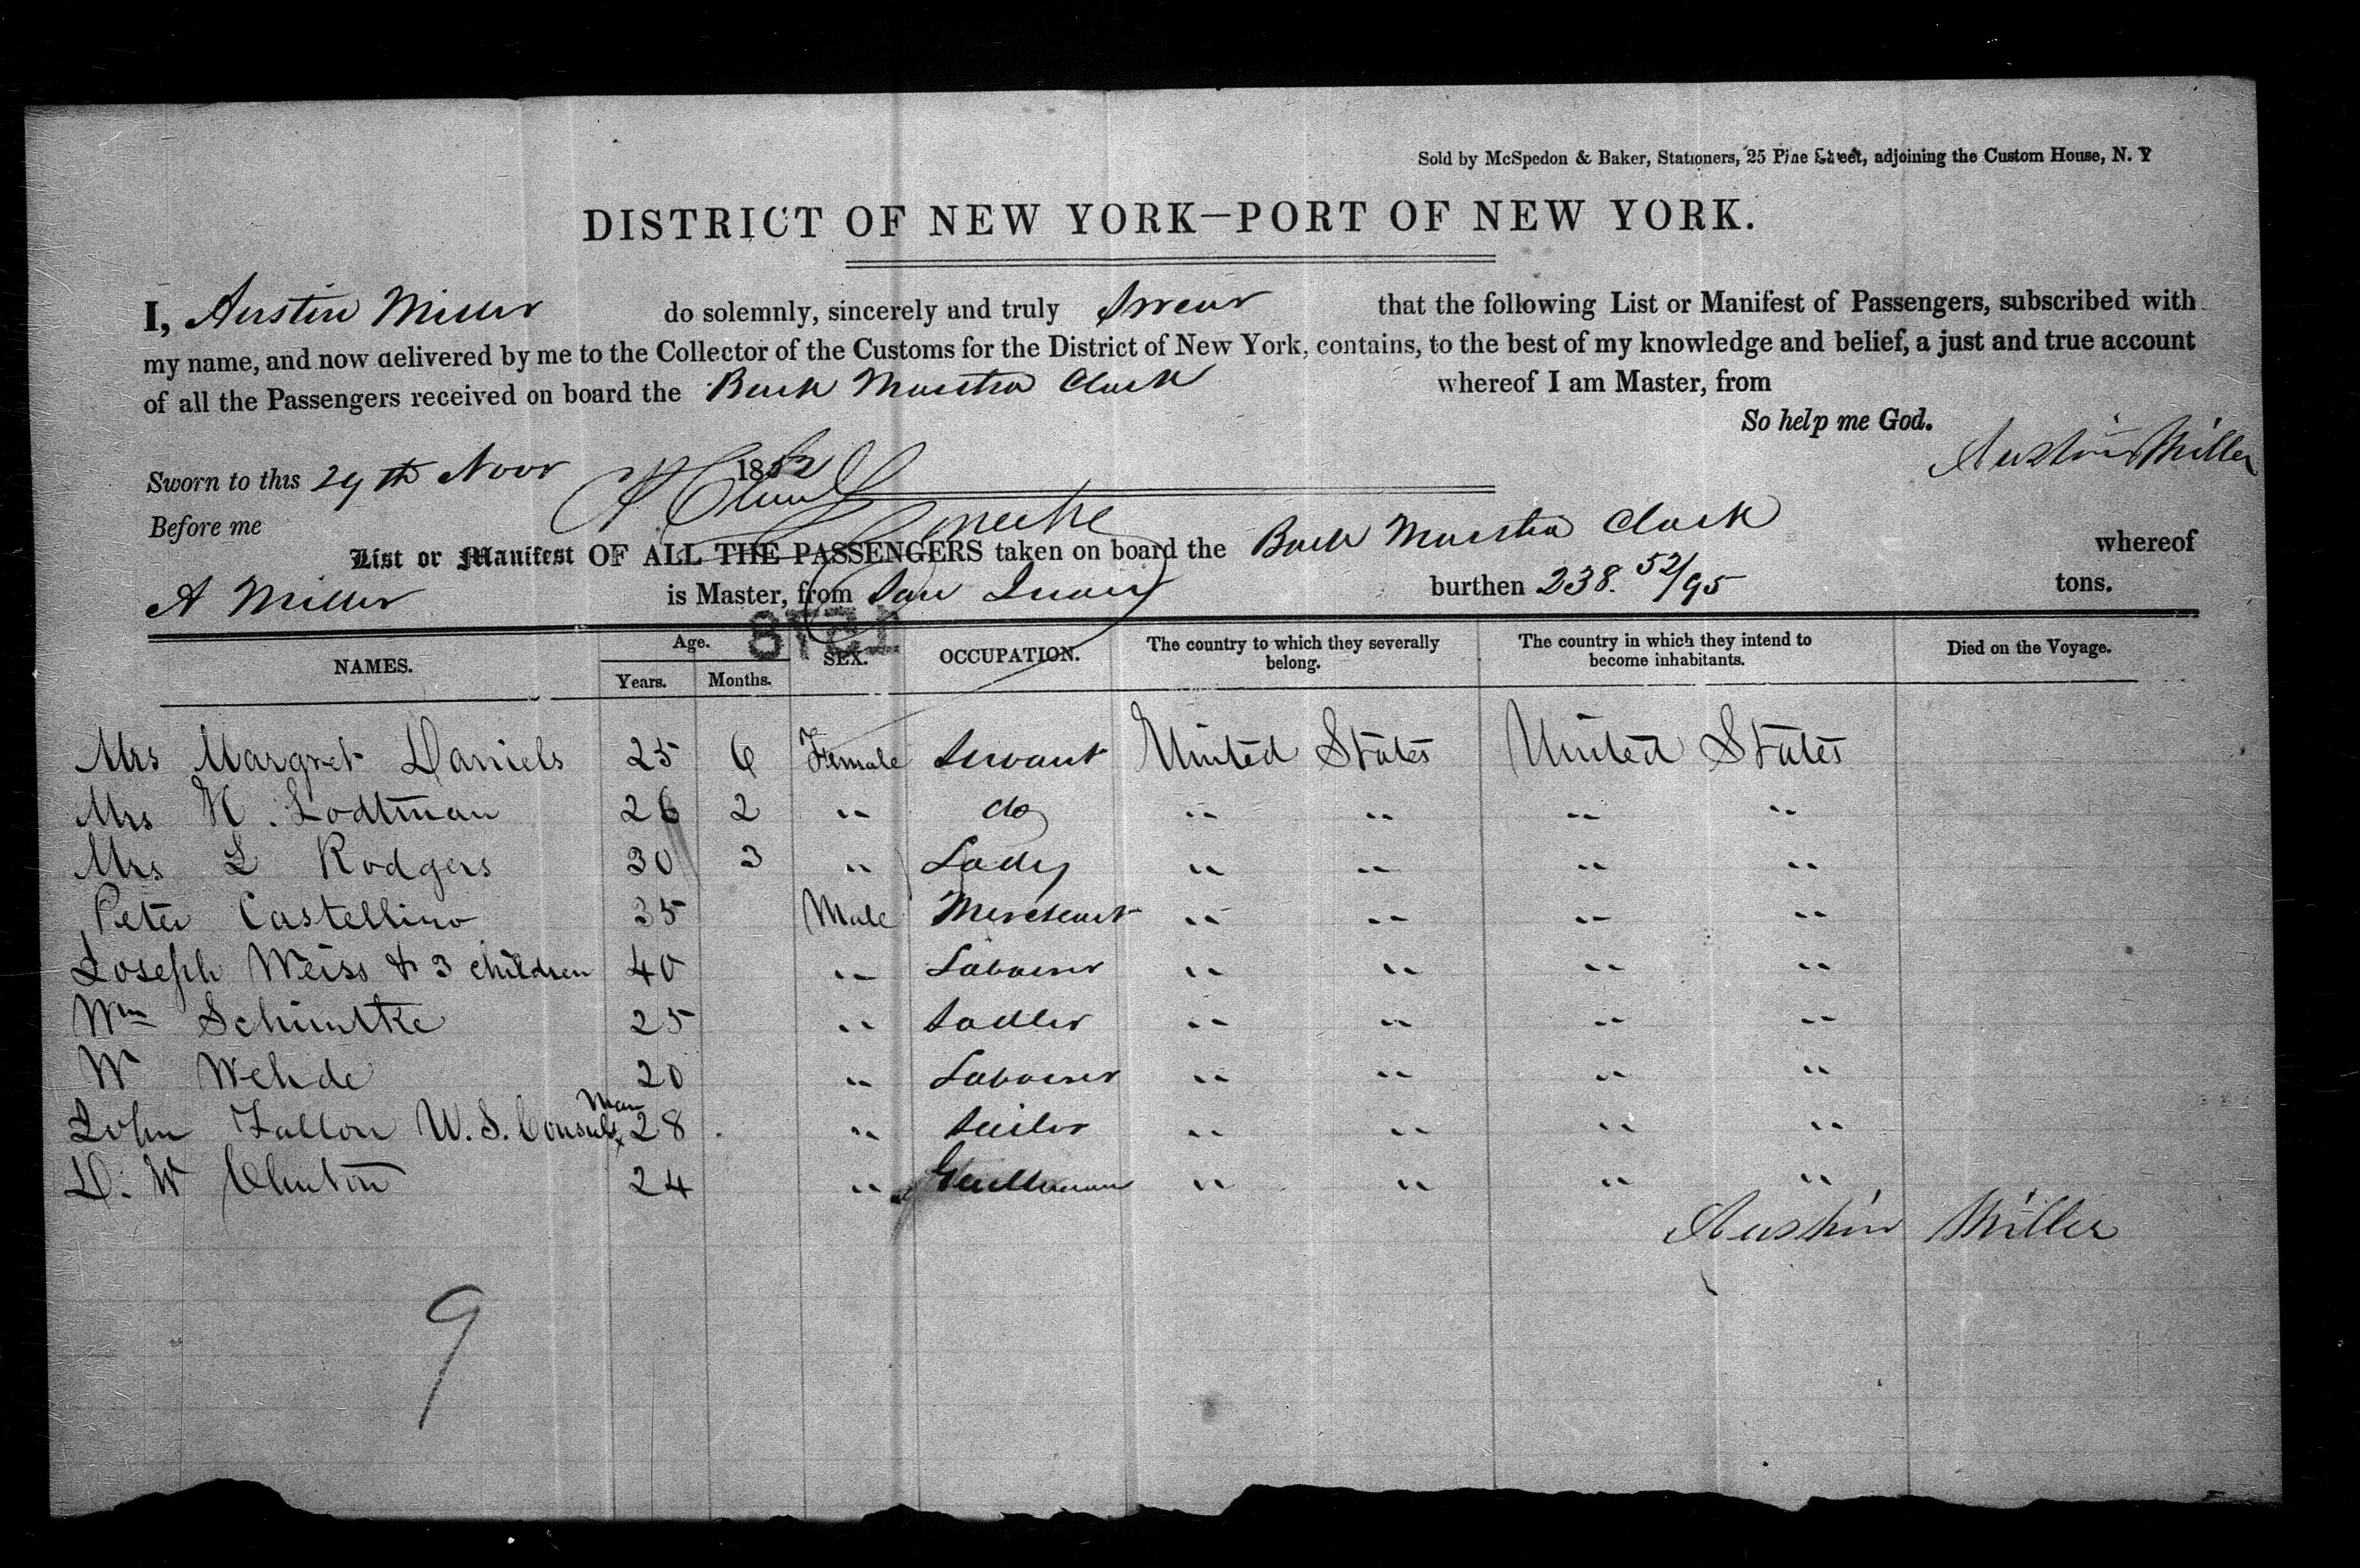 Sold by McSpedon & Baker, Stationers, 25 Pine Street, adjoining the Custom House, N. Y
DISTRICT OF NEW YORK—PORT OF NEW YORK.
I, Austin Miller do solemnly, sincerely and truly Swear that the following List or Manifest of Passengers, subscribed with
my name, and now delivered by me to the Collector of the Customs for the District of New York, contains, to the best of my knowledge and belief, a just and true account
of all the Passengers received on board the Bark Martha Clark whereof I am Master, from
So help me God.
Austin Miller
Sworn to this 29th Novr 1852
Before me
List or Manifest OF ALL THE PASSENGERS taken on board the Bark Martha Clark whereof
A Miller is Master, from San Juan burthen 238. 52/95 tons.
1518
NAMES. Age. Years. Months. SEX. OCCUPATION. The country to which they severally belong. The country in which they intend to become inhabitants. Died on the Voyage.
Mrs Margret Daniels 25 6 Female Servant United States United States
Mrs N. Lodtman 26 2 " do " " " "
Mrs L Rodgers 30 3 " Lady " " " "
Peter Castellino 35 Male Merchant " " " "
Joseph Weiss & 3 children 40 " Labourer " " " "
Wm Schimtke 25 " Sadler " " " "
W Wehde 20 " Labourer " " " "
John Fallon U.S. Consuls Man 28 " Sailor " " " "
D. W Clinton 24 " Gentleman " " " "
Austin Miller
9